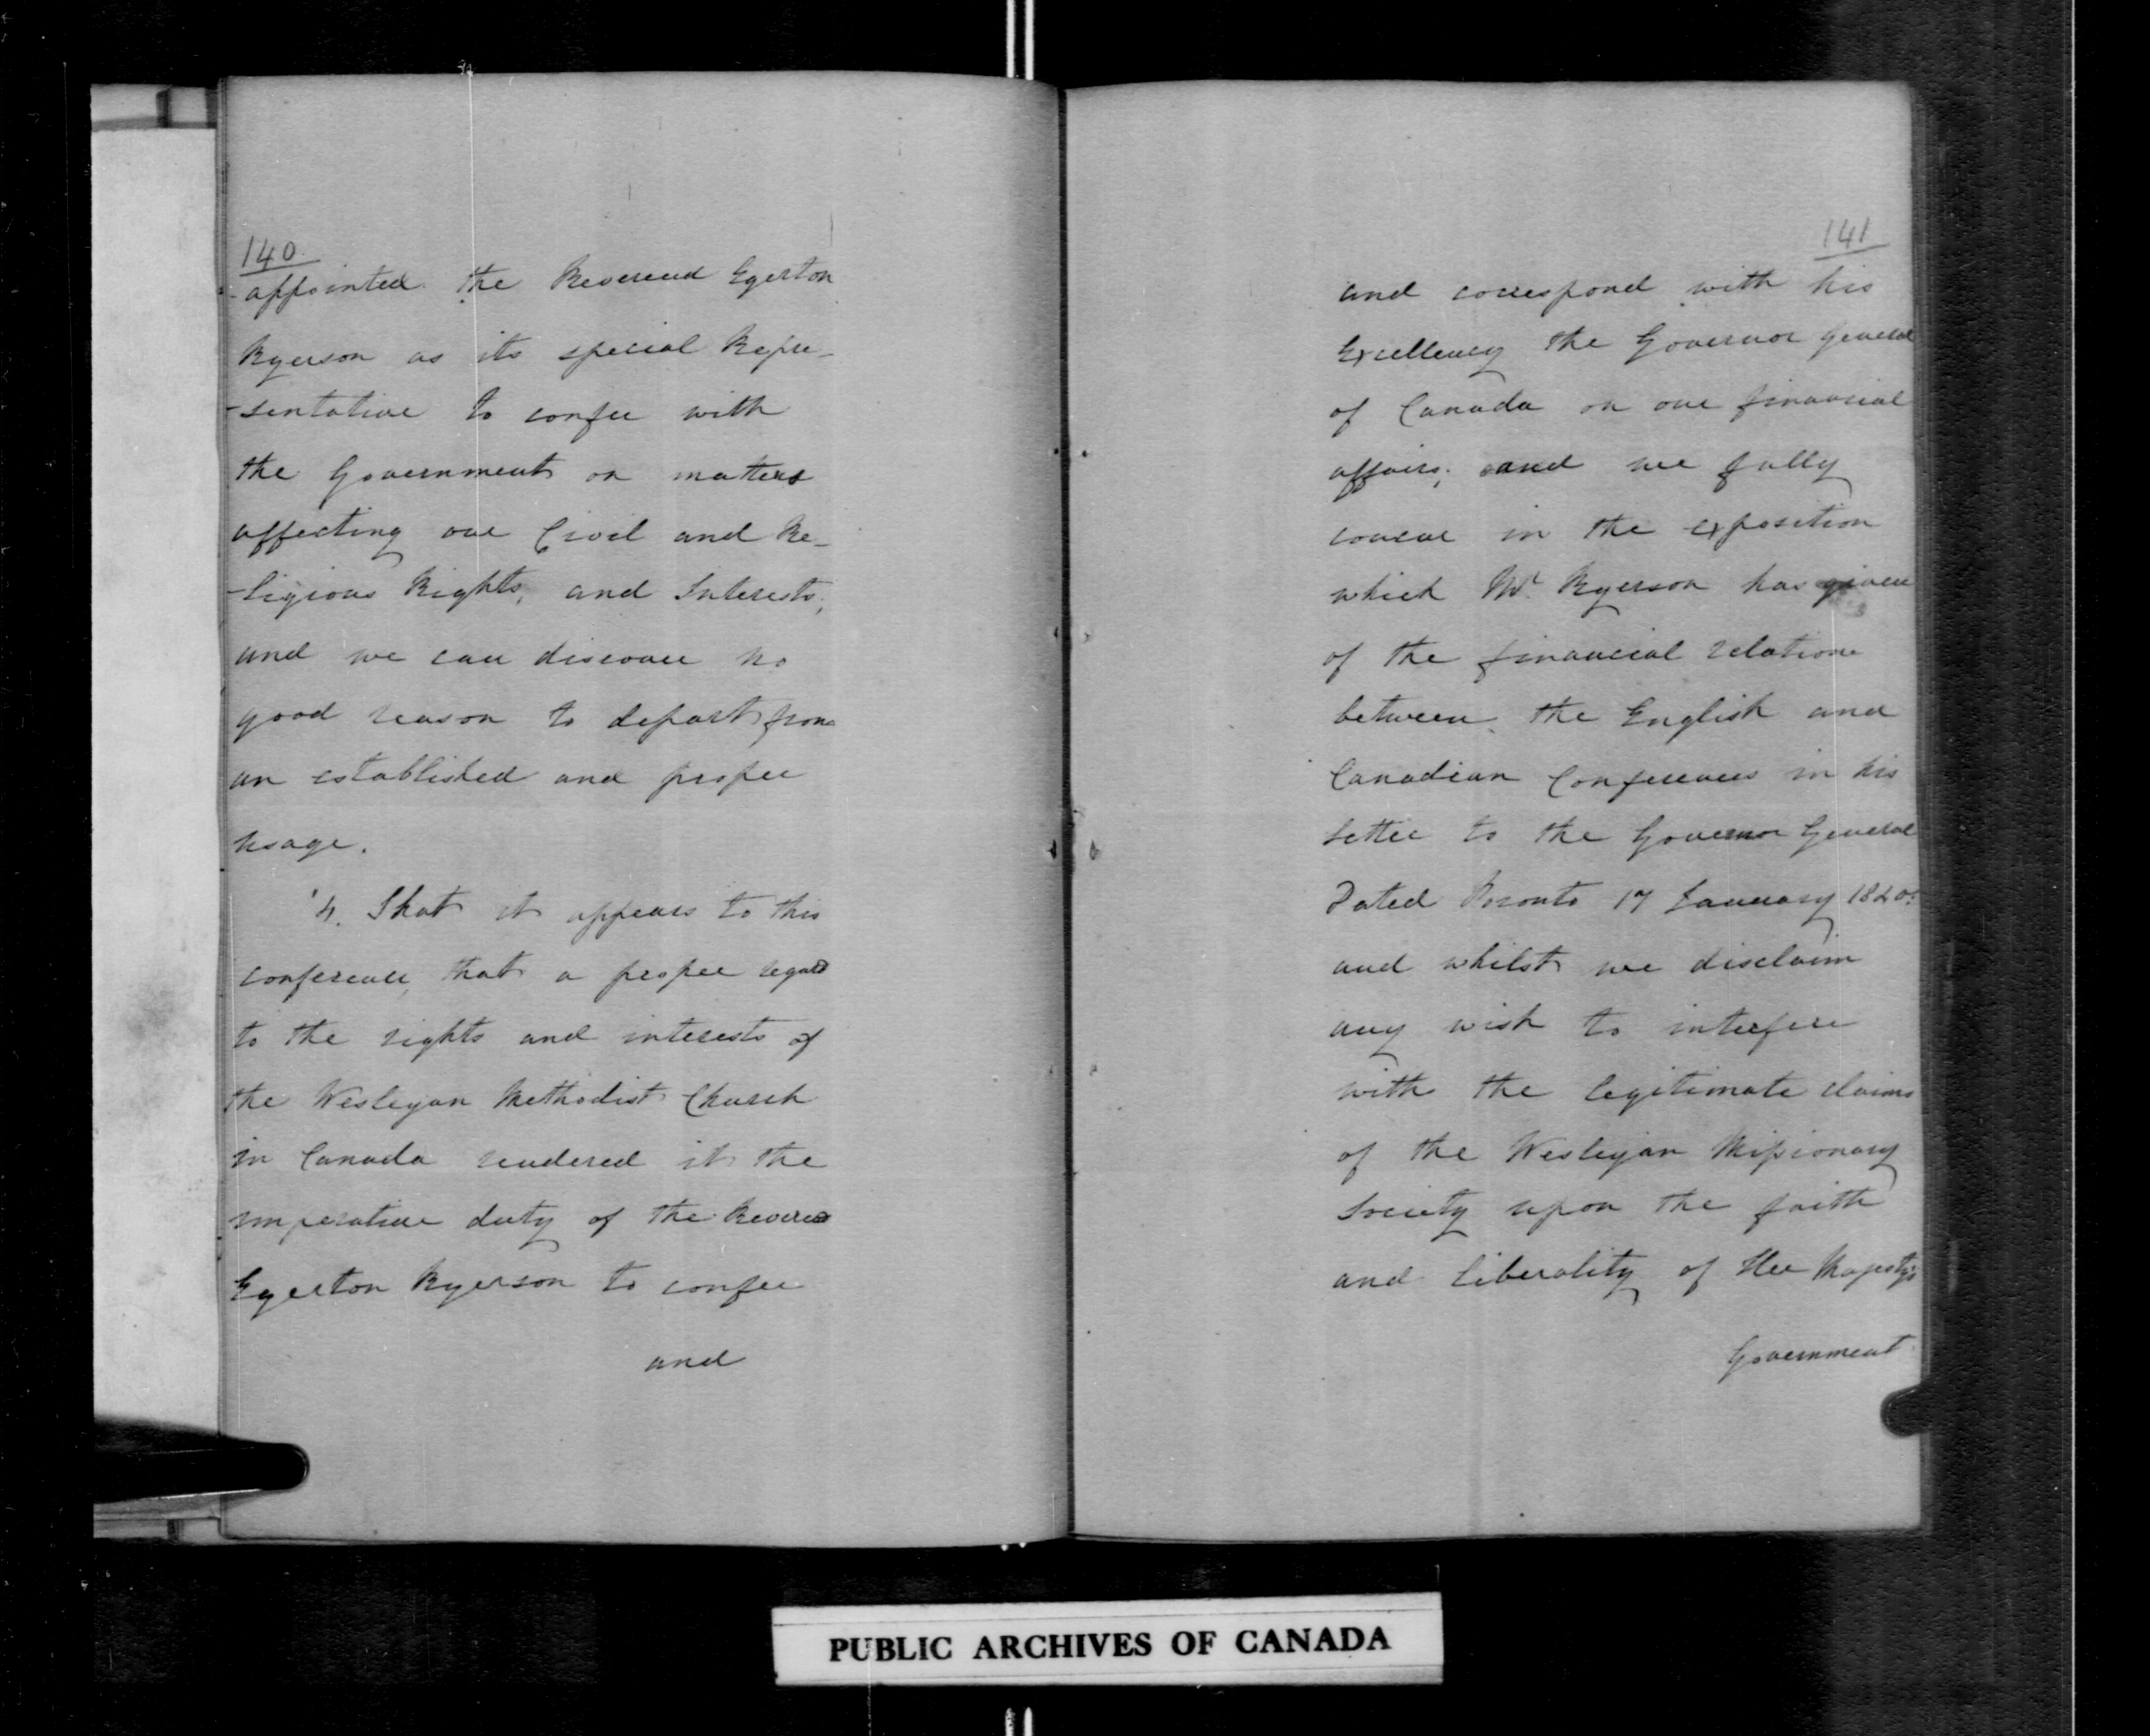 140.
appointed the Reverend Egerton
Ryerson as its special Repre-
-sentative to confer with
the Government on matters
affecting our Civil and Re-
-ligious Rights, and Interests;
and we can discover no
good reason to depart from
an established and proper
usage.
'4. That it appears to this
conference, that a proper regard
to the rights and interests of
the Wesleyan Methodist Church
in Canada rendered it the
imperative duty of the Reverend
Egerton Ryerson to confer
and
141
and correspond with his
Excellency the Governor General
of Canada on our financial
affairs; and we fully
concur in the exposition
which Mr. Ryerson has given
of the financial relations
between the English and
Canadian Conferences in his
letter to the Governor General
Dated Toronto 17 January 1840:
and whilst we disclaim
any wish to interfere
with the legitimate claims
of the Wesleyan Missionary
Society upon the faith
and liberality of Her Majesty's
Government
PUBLIC ARCHIVES OF CANADA